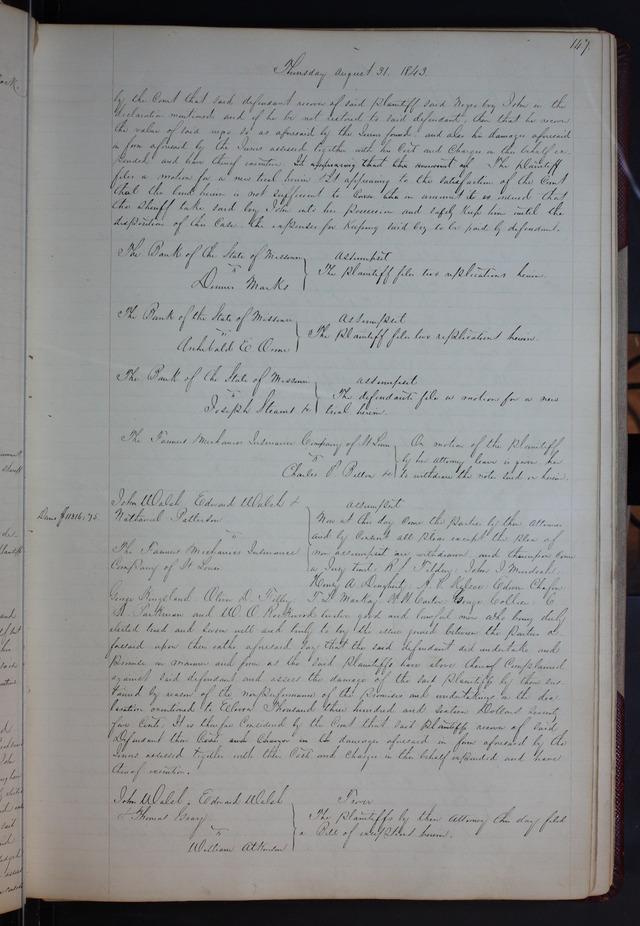 147
Thursday August 31. 1843.
by the Court that said defendant recover of said plaintiff said Negro boy John in the
declaration mentioned and if he be not restored to said defendant, then that he recover
the value of said negro so as aforesaid by the Jurors found and also his damages aforesaid
in form aforesaid by the Jurors assessed together with his Cost and Charges in this behalf ex
pended and have thereof execution. It appearing that the amount of The plaintiff
files a motion for a new trial herein It appearing to the satisfaction of the Court
that the bond herein is not sufficient to Cover in amount it is ordered that
the Sheriff take said boy John into his possession and safely keep him until the
disposition of this Case the expenses for keeping said boy to be paid by defendant.
The Bank of the State of Missouri assumpsit
vs The plaintiff files two replications herein
Marks
The Bank of the State of Missouri assumpsit
vs The plaintiff files two replications herein.
Archibald E Orme
The Bank of the State of Missouri assumpsit
vs The defendants file a motion for a new
Joseph &c trial herein.
The Farmers Mechanics Insurance Company of St Louis On motion of the plaintiff
vs by his attorney leave is given him
Charles P &c to withdraw the note sued on herein.
John Walsh, Edward Walsh & assumpsit
Dams $11316.75 Nathaniel Patterson Now at this day come the parties by their attornies
vs and by Consent all pleas except the plea of
The Farmers Mechanics Insurance non assumpsit are withdrawn and thereupon come
Company of St Louis a Jury to wit. R S Tilden John J
Henry A Edwin
George Kingsland Oliver D. Filley T. L. W. W. Carter George Collier E
D. Parkman and W O twelve good and lawful men who being duly
elected tried and sworn well and truly to try the issue joined between the Parties a
foresaid upon their oaths aforesaid say that the said defendant did undertake and
promise in manner and form as the said Plaintiffs have above thereof Complained
against said defendant and assess the damages of the said plaintiffs by them sus
tained by reason of the nonperformance of the Promises and undertakings in the dec
laration mentioned to Eleven Thousand three hundred and sixteen Dollars Seventy
five Cents. It is therefore Considered by the Court that said plaintiffs recover of said
Defendant their Costs and Charges in damages aforesaid in form aforesaid by the
Jurors assessed together with their Cost and Charges in this behalf expended and have
thereof execution.
John Walsh, Edward Walsh Trover
& Thomas The plaintiffs by their Attorney this day filed
vs a Bill of exceptions herein.
William Atkinson